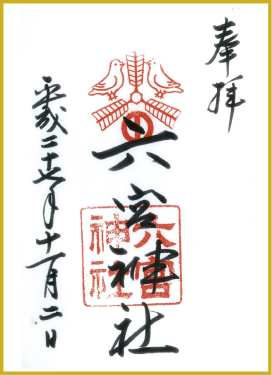 奉拝
六宮神社
六宮
神社
平成二十七年十一月二日